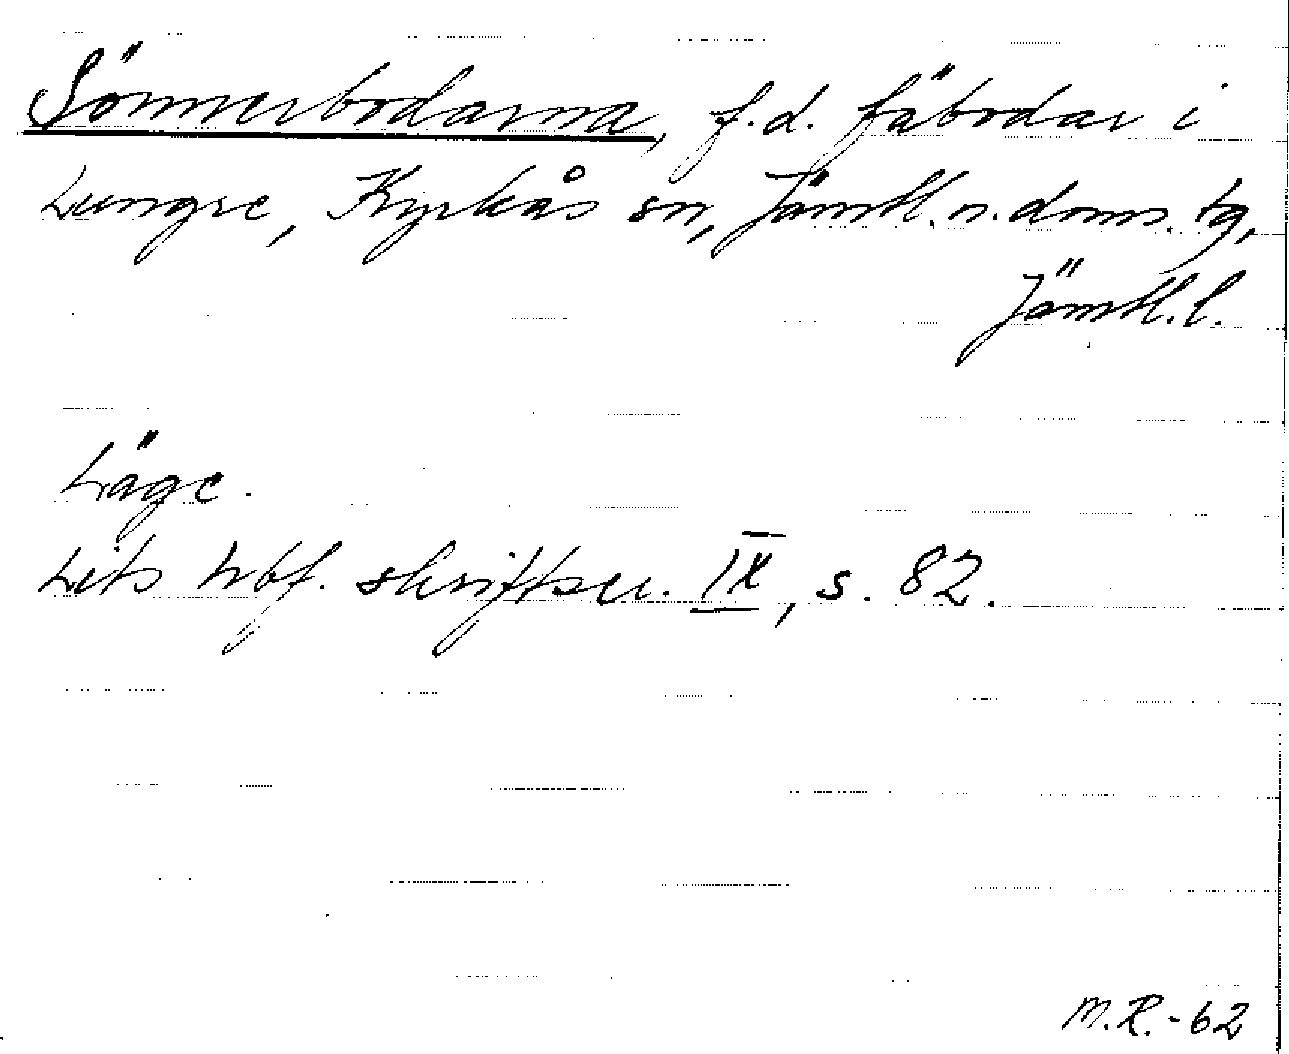 Sönnerbodarna, f.d. fäbodar i
Lungre, Kyrkås sn, Jämtl. n. doms. tg,
Jämtl. l.
Läge.
Lits hbf. skriftser. IX, s. 82.
M.R.-62